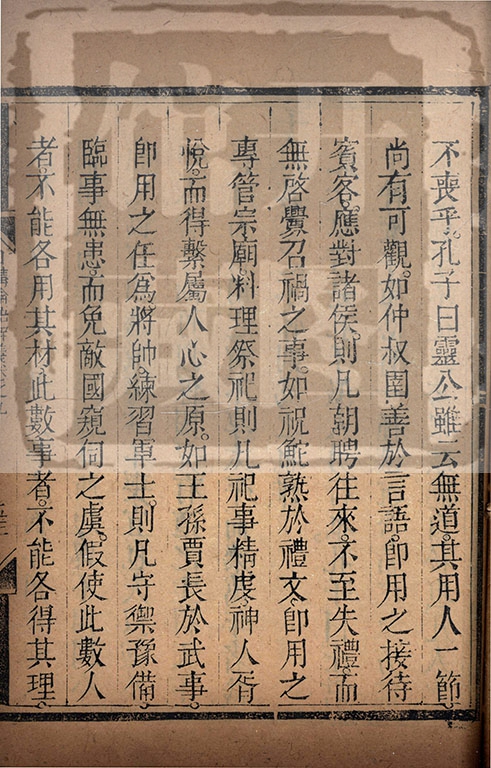 不喪乎。孔子曰靈公雖云無道。其用人一節。
尚有可觀。如仲叔圉善於言語。即用之接待
賓客。應對諸侯。則凡朝聘往來。不至失禮。而
無啓釁召禍之事。如祝鮀熟於禮文。即用之
專管宗廟。料理祭祀。則凡祀事精虔。神人胥
悅。而得繫屬人心之原。如王孫賈長於武事。
即用之任爲將帥。練習軍士。則凡守禦豫備。
臨事無患。而免敵國窺伺之虞。假使此數人
者。不能各用其材。此數事者。不能各得其理。